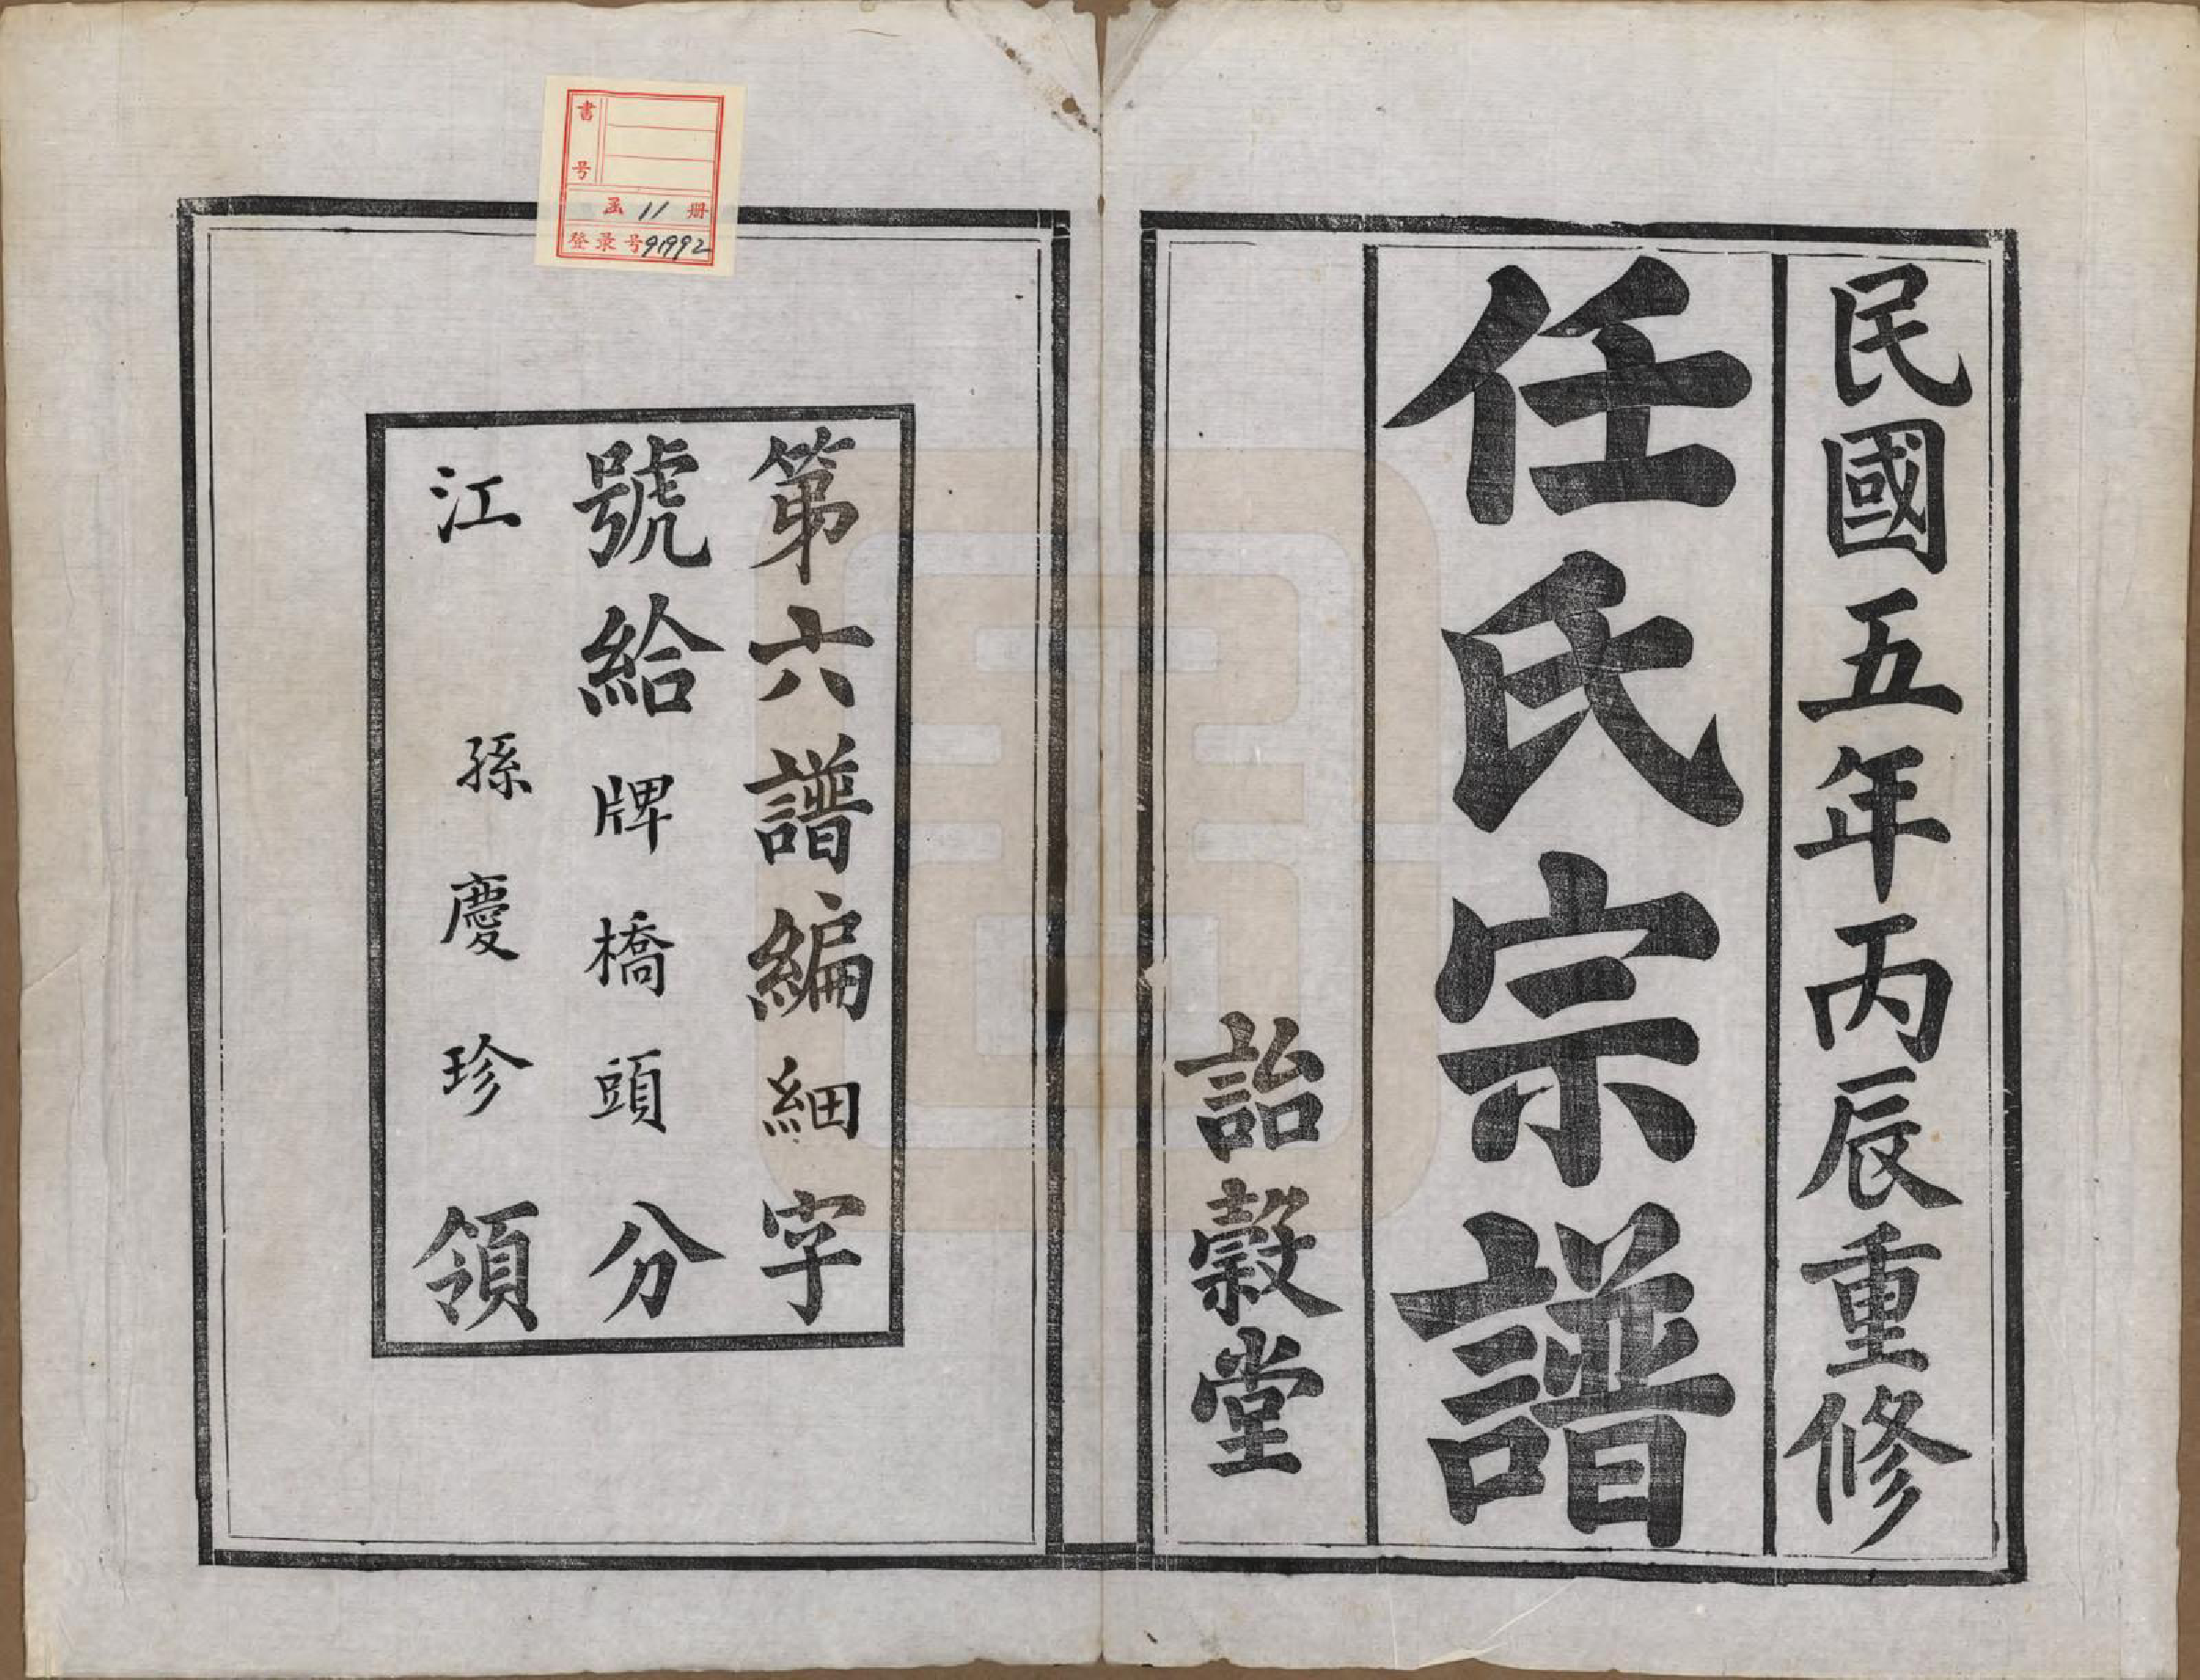 民國五年丙辰重修
任氏宗譜
詒穀堂
第六譜編細字
號給牌橋頭分
江孫慶珍領
書号
函 11 册
登录号91992